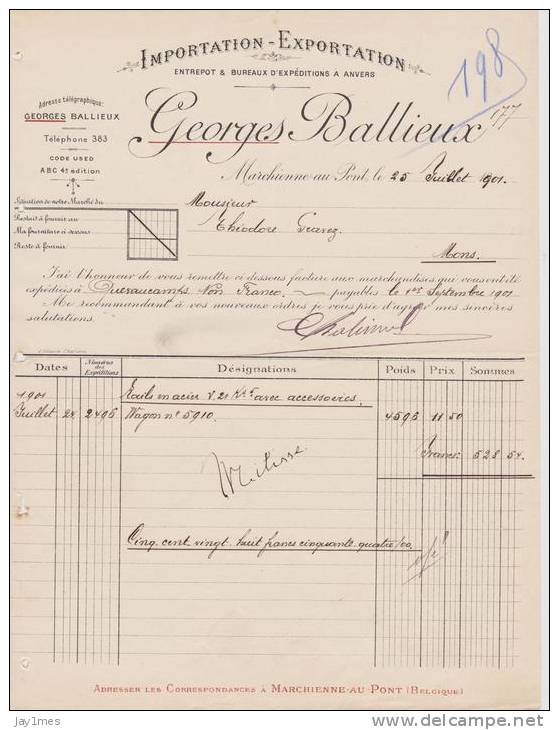 IMPORTATION - EXPORTATION
ENTREPOT & BUREAUX D'EXPÉDITIONS A ANVERS
198
177
Adresse télégraphique:
GEORGES BALLIEUX
Téléphone 383
CODE USED
ABC 4t edition
Georges Ballieux
Marchienne-au-Pont, le 25 Juillet 1901.
Situation de notre Marché du
Restait à fournir au
Ma fourniture ci dessous
Reste à fournir
Monsieur
Théodore
Mons.
J'ai l'honneur de vous remettre ci dessous facture aux marchandises qui vous ont été
expédiées à Quevaucamps Non Franco payables le 1er Septembre 1901
Me recommandant à vos nouveaux ordres je vous prie d'agréer mes sincères
salutations.
Dates Numéros des Expéditions Désignations Poids Prix Sommes
1901 Rails en acier avec accessoires.
Juillet 24 2496 Wagon no 5910. 4596 11 50
Francs 528 54
Cinq cent vingt huit francs cinquante quatre
ADRESSER LES CORRESPONDANCES À MARCHIENNE-AU-PONT (BELGIQUE)
jay1mes
delcampe.net